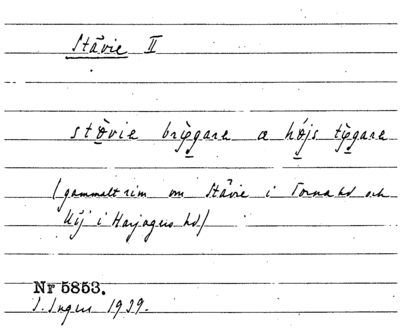 Stävie II
støvie briggare æ højs tiggare
(gammalt rim om Stävie i Torna hd och
Hög i Harjagers hd)
Nr 5853.
I. Ingers 1939.